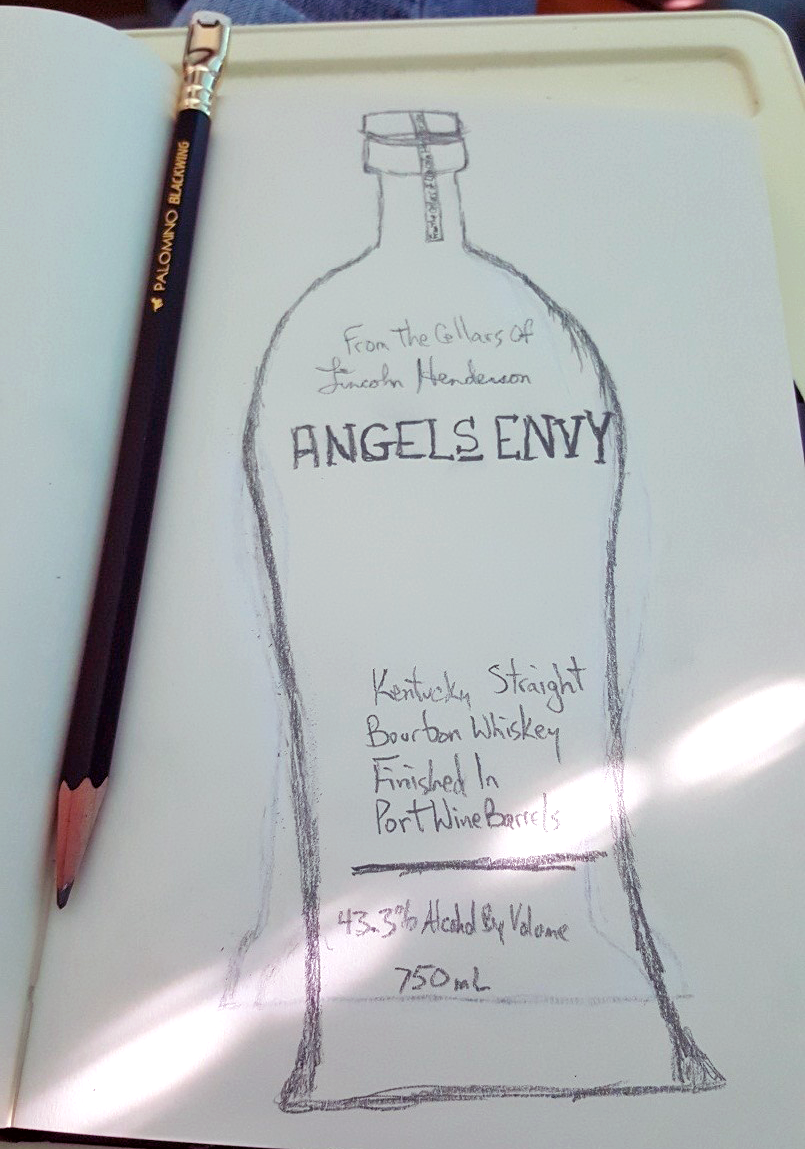 PALOMINO BLACKWING
From The Cellars Of
Lincoln Henderson
ANGELS ENVY
Kentucky Straight
Bourbon Whiskey
Finished In
Port Wine Barrels
43.3% Alcohol By Volume
750mL